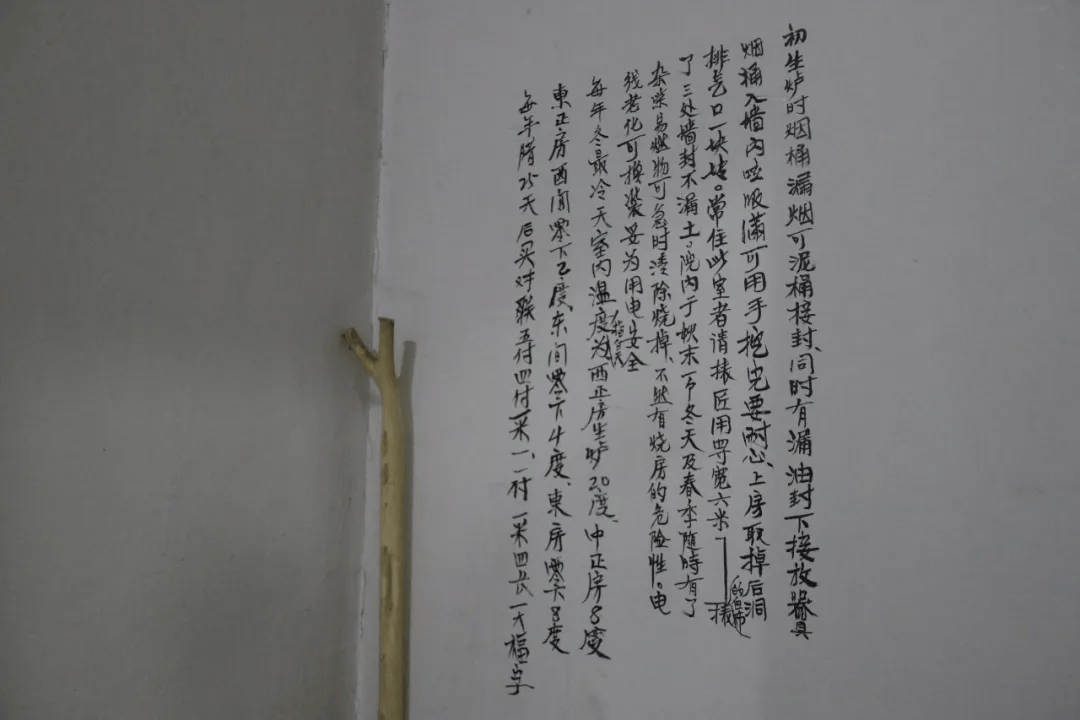 初生炉时烟桶漏烟可泥桶接封、同时有漏油封下接放器具
烟桶入墙内吸满可用手挖完要耐心、上房取掉后洞
排气口一块砖。常住此室者请裱匠用四宽六米
的白布
裱
了三处墙封不漏土。院内于秋末下冬天及春季随時有了
杂柴易燃物可急时清除烧掉、不然有烧房的危险性。电
线老化可换装妥为用电安全
每年冬最冷天室内温度为西正房生炉20度、中正房8度
東正房西间零下2度、东间零下4度、東房零下8度
每年腊25天后买对联五付四付一米一、一付一米四长一大福字